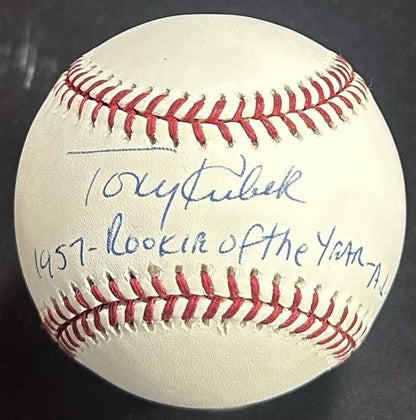 Tony Kubek
1957-Rookie of the Year-A.L